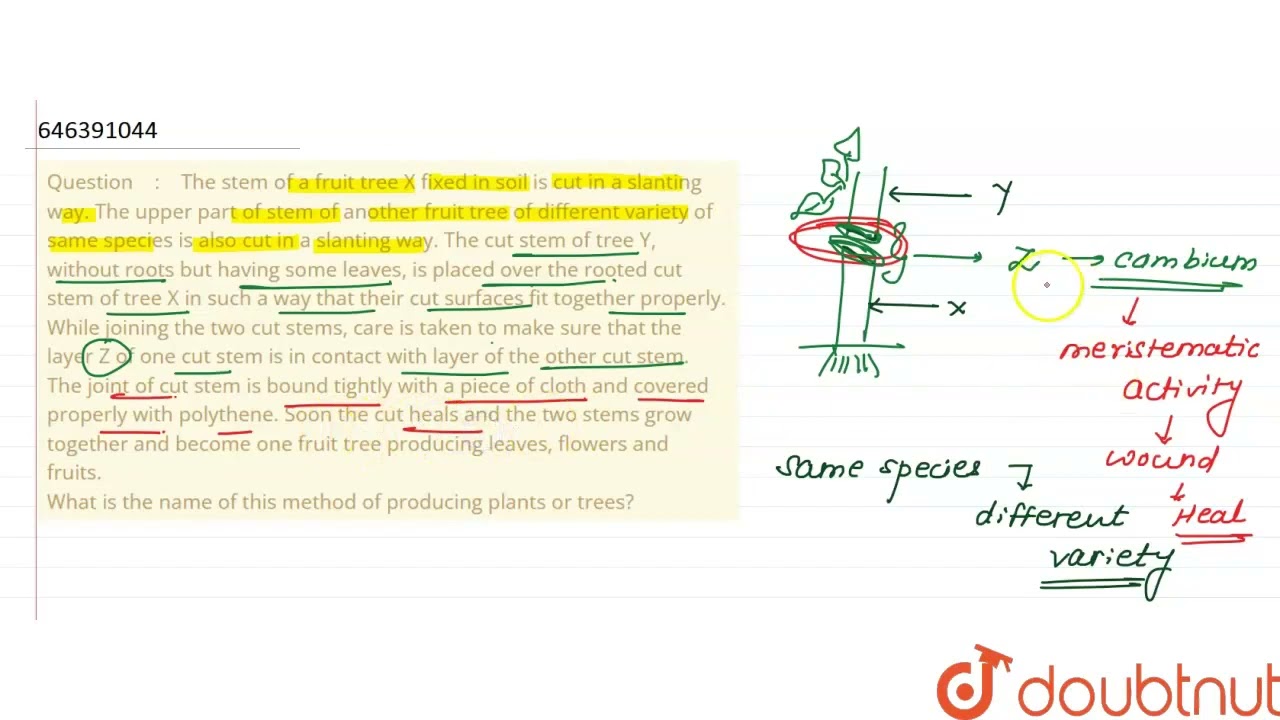 646391044
Question : The stem of a fruit tree X fixed in soil is cut in a slanting
way. The upper part of stem of another fruit tree of different variety of
same species is also cut in a slanting way. The cut stem of tree Y,
without roots but having some leaves, is placed over the rooted cut
stem of tree X in such a way that their cut surfaces fit together properly.
While joining the two cut stems, care is taken to make sure that the
layer Z of one cut stem is in contact with layer of the other cut stem.
The joint of cut stem is bound tightly with a piece of cloth and covered
properly with polythene. Soon the cut heals and the two stems grow
together and become one fruit tree producing leaves, flowers and
fruits.
What is the name of this method of producing plants or trees?
Y
Z → cambium
X
meristematic
activity
wound
Heal
same species
different
variety
doubtnut